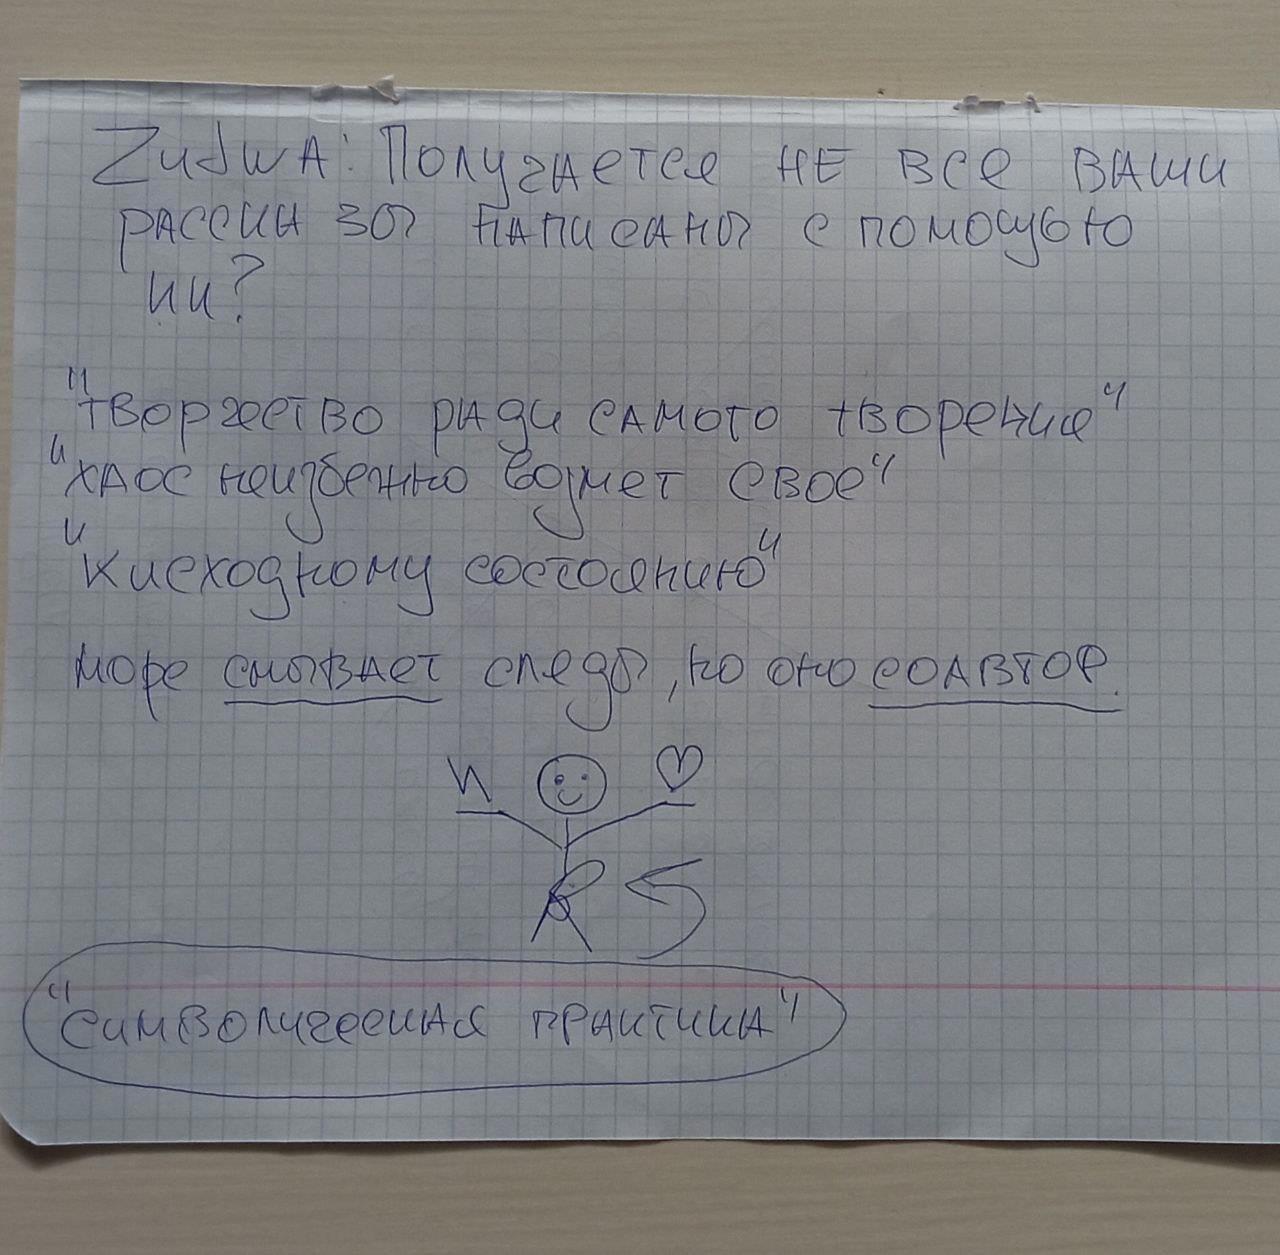 ZudwA: Получается не все ваши
рассказы написаны с помощью
ии?
"творчество ради самого творения"
"хаос неизбежно возмет свое"
"к исходному состоянию"
море смывает следы, но оно соавтор.
"символическая практика"